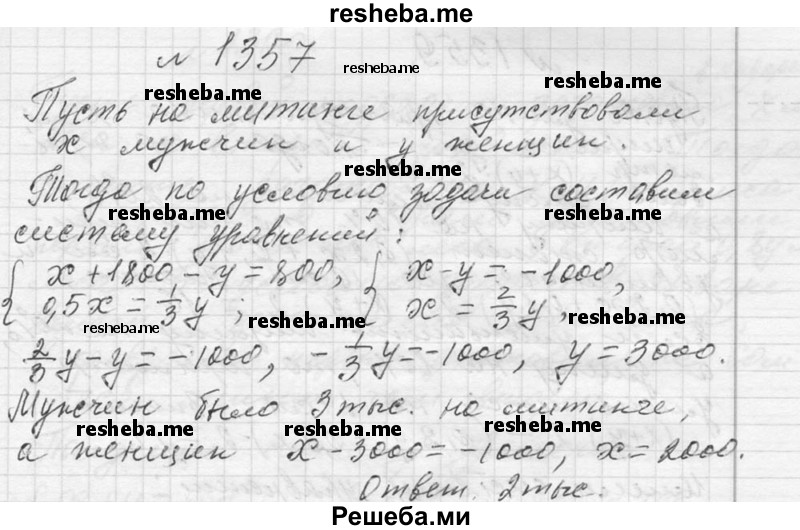 resheba.me
№ 1357
resheba.me
Пусть на митинге присутствовали
resheba.me resheba.me
x мужчин и y женщин.
resheba.me
Тогда по условию задачи составим
resheba.me resheba.me
систему уравнений:
{ x + 1800 - y = 800, { x - y = -1000,
0,5x = 1/3 y ; x = 2/3 y ,
resheba.me resheba.me resheba.me
2/3 y - y = -1000, - 1/3 y = -1000, y = 3000.
Мужчин было 3 тыс. на митинге,
resheba.me resheba.me resheba.me
а женщин x - 3000 = -1000, x = 2000.
Ответ. 2 тыс.
Решеба.ми